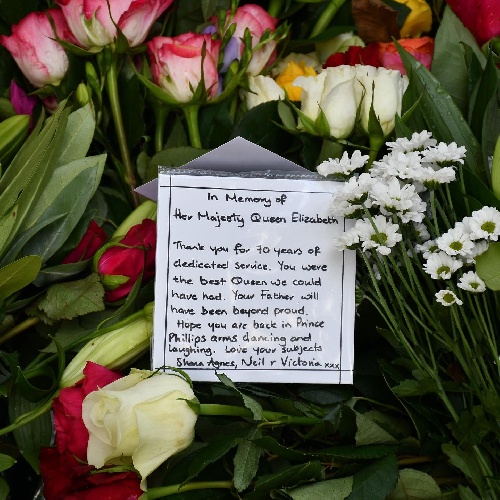 In Memory of
Her Majesty Queen Elizabeth
Thank you for 70 years of
dedicated service. You were
the best Queen we could
have had. Your Father will
have been beyond proud.
Hope you are back in Prince
Phillips arms dancing and
laughing. Love your subjects
Agnes, Neil & Victoria xxx